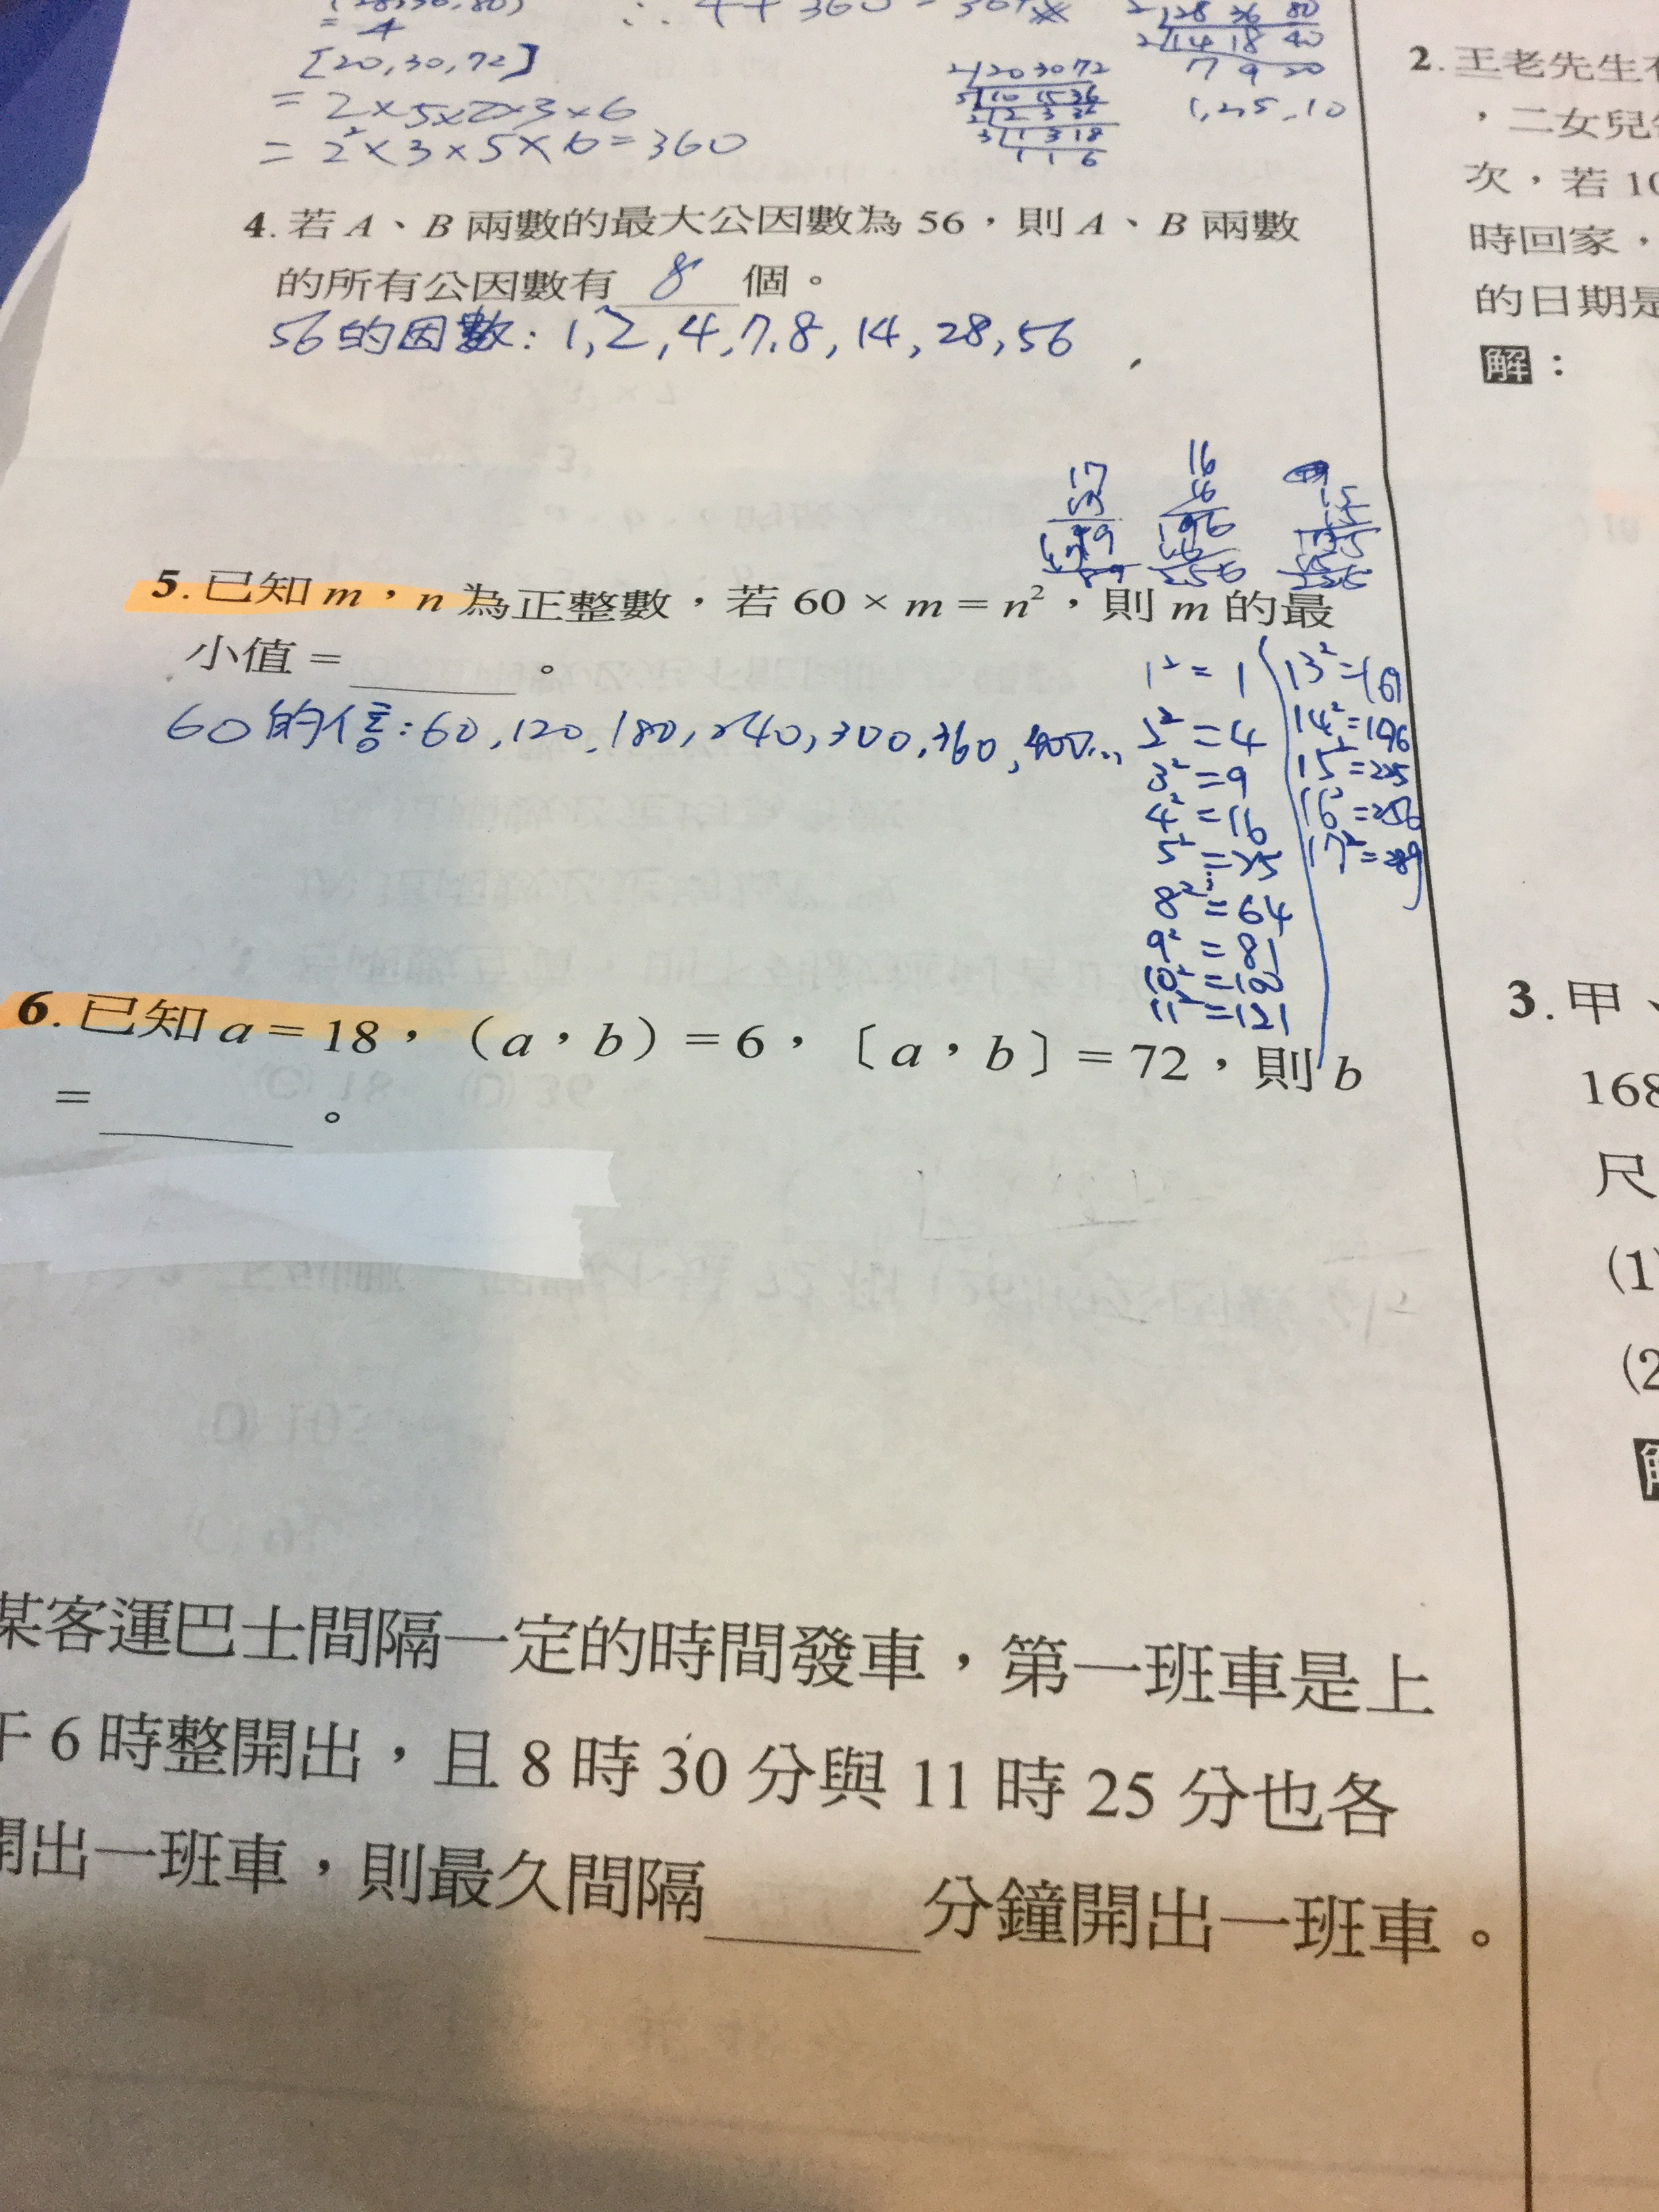 = 4
[20,30,72]
= 2×5×2×3×6
= 2²×3×5×6=360
2 28 36 80
2 14 18 40
7 9 20
1,2,5,10
2 20 30 72
5 10 15 36
2 2 3 36
3 1 3 18
1 1 6
4. 若 A、B 兩數的最大公因數為 56,則 A、B 兩數
的所有公因數有 8 個。
56的因數:1,2,4,7,8,14,28,56
17
16
16
15
256
5. 已知 m,n 為正整數,若 60 × m = n²,則 m 的最
小值=______。
60的倍:60,120,180,240,300,360,400...
1²=1
2²=4
3²=9
4²=16
5²=25
8²=64
9²=81
10²=100
11²=121
13²=169
14²=196
15²=225
16²=256
17²=289
6. 已知 a = 18,(a,b)= 6,〔a,b〕= 72,則 b
=______。
某客運巴士間隔一定的時間發車,第一班車是上
午 6 時整開出,且 8 時 30 分與 11 時 25 分也各
開出一班車,則最久間隔______分鐘開出一班車。
2. 王老先生有
,二女兒每
次,若 10
時回家,
的日期是
解:
3. 甲、
168
尺
(1)
(2